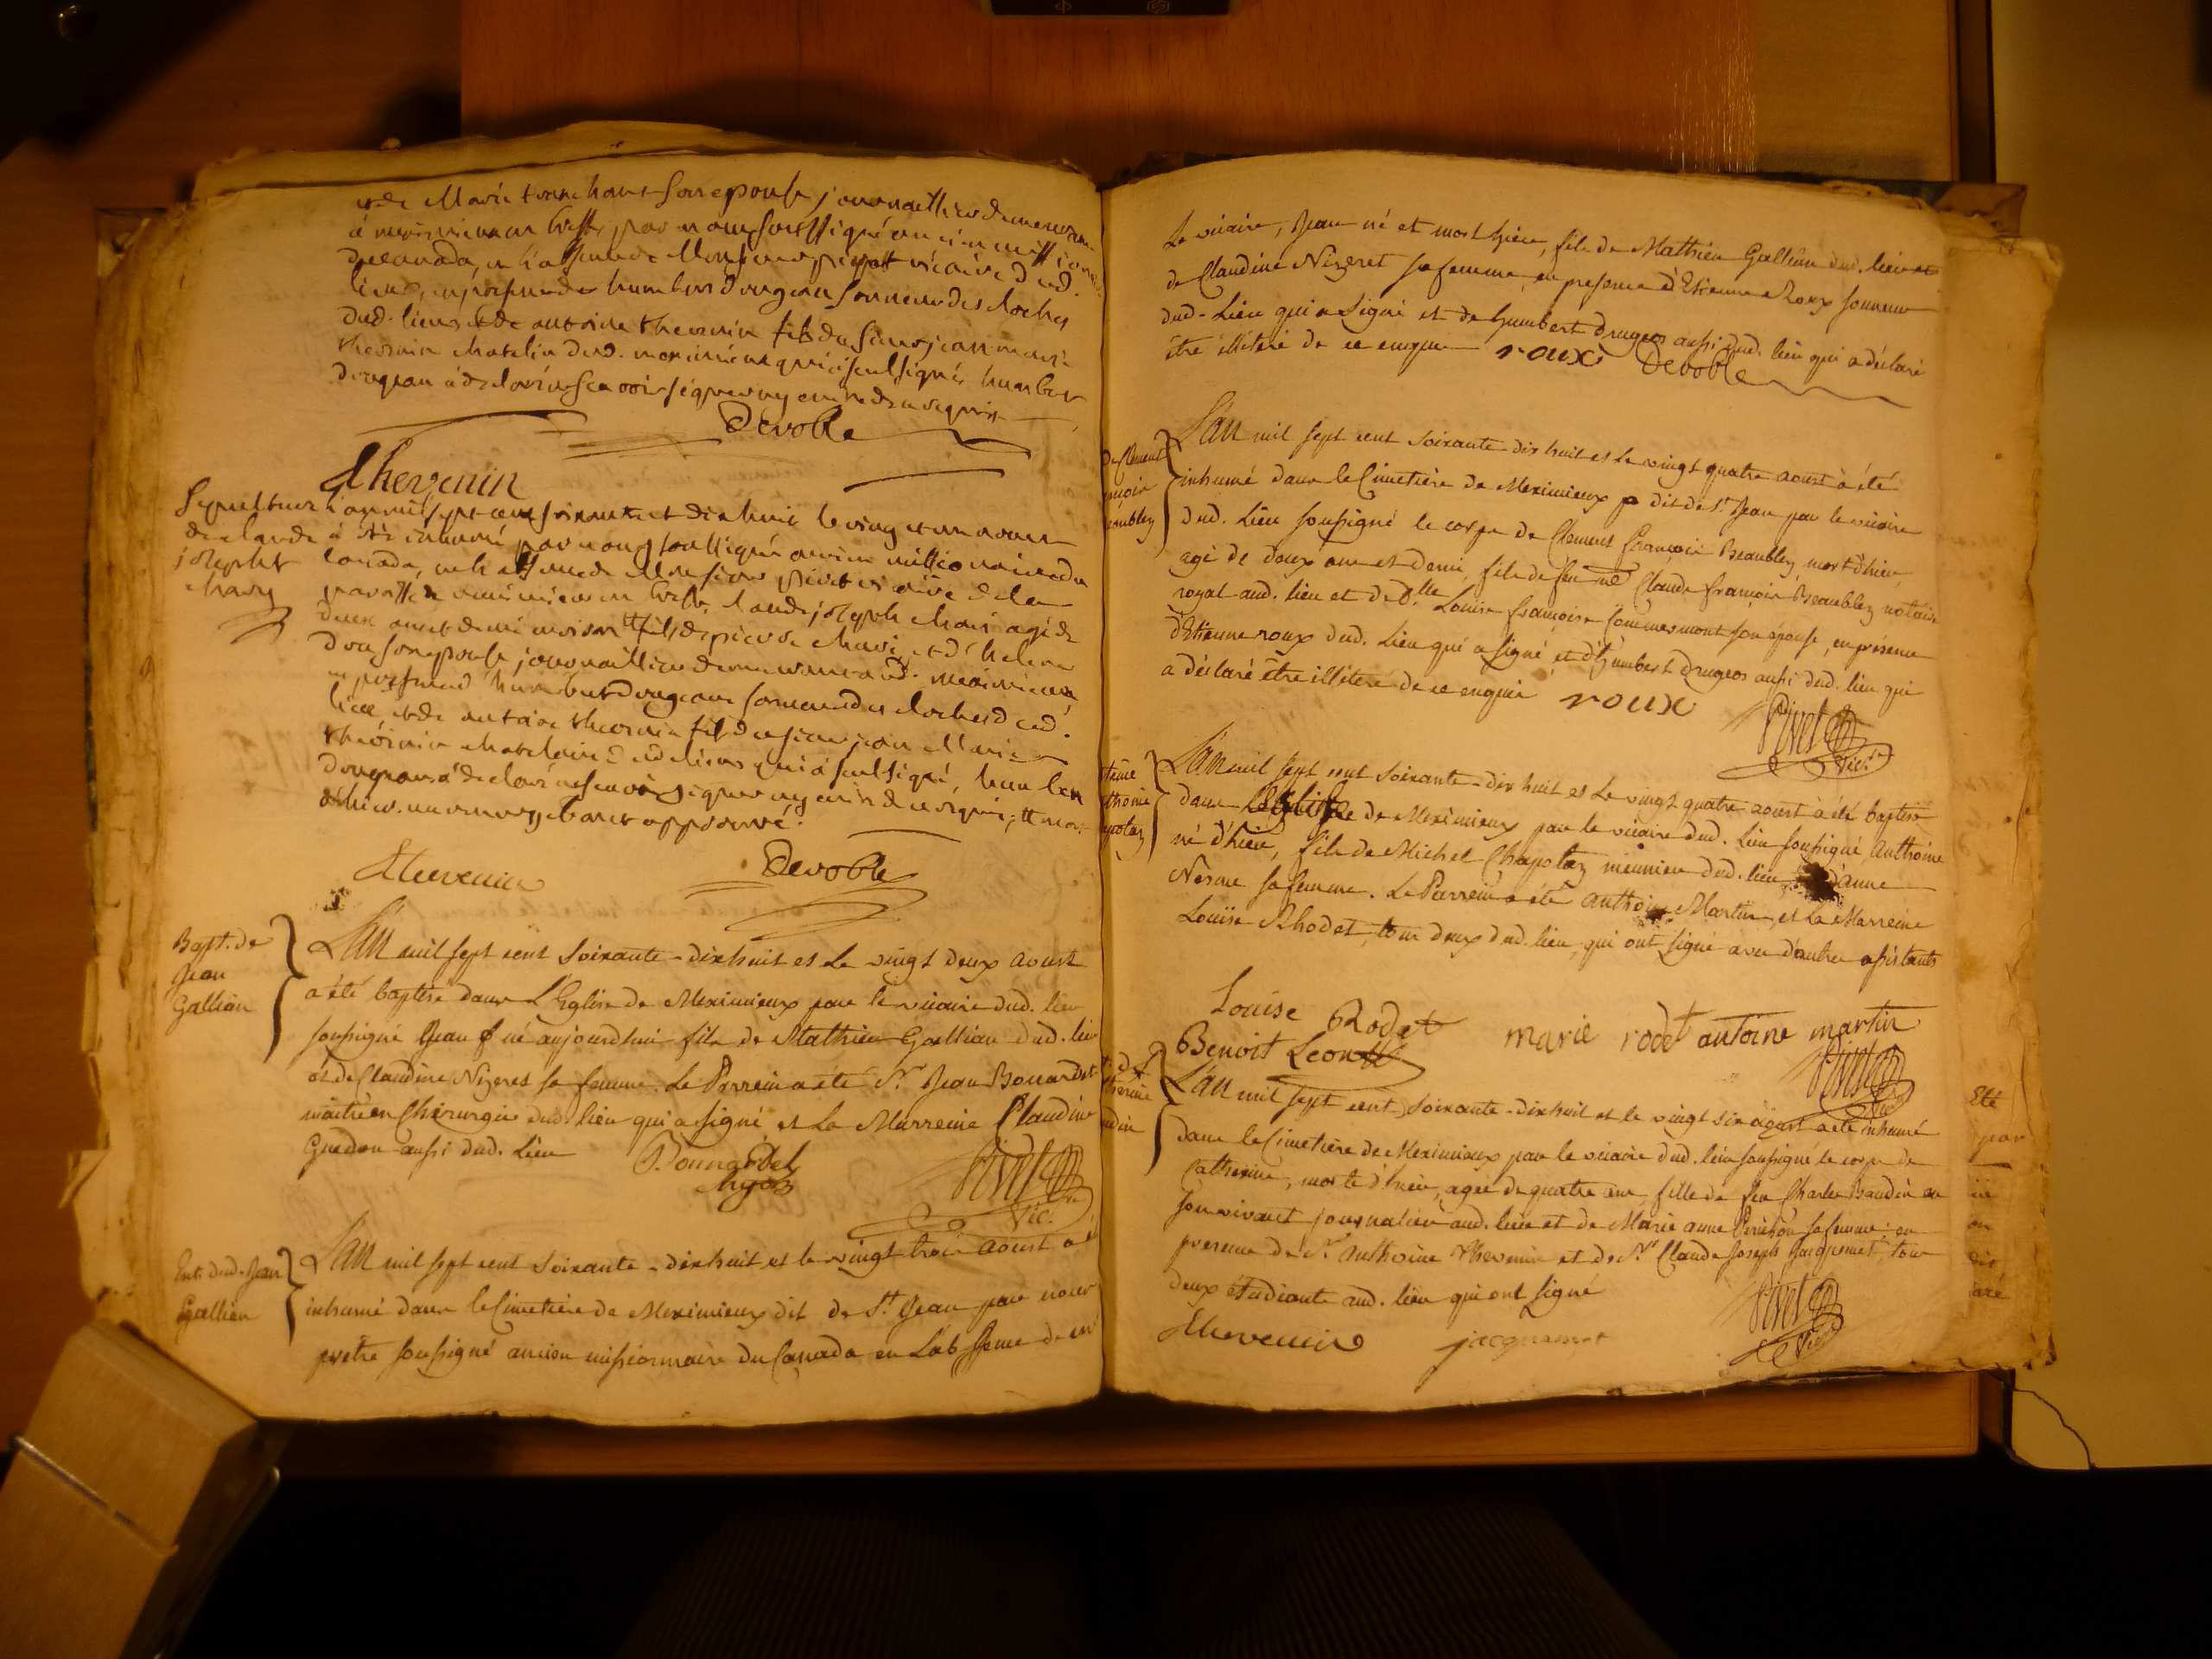 et de Marie tranchant son epouse journallier demeurant
à meximieux en bresse, par nous soussigné ancien missionnaire
du canada, en l'absence de Monsieur pivet vicaire dud.
lieu, en presence de humbert drugeon sonneur des cloches
dud. lieu et de antoine thevenin fils du sieur jean marie
thevenin chatelin dud. meximieux qui a seul signé, humbert
drugeon a declaré ne scavoir signer enquis et requis
Devoble
thevenin
Sepulture
de claude
joseph
chary
L'an mil sept cent soixante et dix huit le vingt et un aoust
a été inhumé par nous soussigné ancien missionnaire du
canada, en l'absence de Monsieur pivet vicaire de la
paroisse de meximieux en bresse, claude joseph chari agé de
deux ans et demi environ fils de pierre chari, et d'helene
son epouse journaillier demeurant aud. meximieux,
en presence d'humbert drugeon sonneur des cloches dud.
lieu, et de antoine thevenin fils du sieur jean Marie
thevenin chatelain dud. lieu qui a seul signé, humbert
drugeon a declaré ne scavoir signer enquis et requis
approuvé.
thevenin
Devoble
Bapt. de
Jean
Gallian
L'an mil sept cent soixante-dix huit et le vingt deux aoust
a été baptisé dans l'Eglise de Meximieux par le vicaire dud. lieu
soussigné Jean né aujourdhui fils de Mathieu Gallian dud. lieu
et de Claudine Nizeret sa femme. Le Parrein a été Sr. Jean Bonardet
maitre en Chirurgie dud. lieu qui a signé et La Marreine Claudine
Guedon aussi dud. Lieu
Pivet
Vic.
Ent. dud. Jean
Gallian
L'an mil sept cent soixante-dix huit et le vingt trois aoust a été
inhumé dans le Cimetière de Meximieux dit de St. Jean par nous
prêtre soussigné ancien missionnaire du Canada en L'absence de mr
Le vicaire, Jean né et mort hier, fils de Mathieu Gallian dud. lieu et
de Claudine Nizeret sa femme, en presence d'Etienne Roux sonneur
dud. Lieu qui a signé et de humbert drugeon aussi dud. lieu qui a déclaré
être illiteré de ce enquis roux Devoble
de Clement
ançois
eaublez
L'an mil sept cent soixante dix huit et le vingt quatre aoust à été
inhumé dans le Cimetière de Meximieux dit de St. Jean par le vicaire
dud. Lieu soussigné le corps de Clement françois Beaublez, mort d'hier,
agé de deux ans et demi, fils de feu me Claude françois Beaublez notaire
royal aud. lieu et de dlle Louise françoise Sommermont son épouse, en présence
d'Etienne roux dud. Lieu qui a signé et d'humbert drugeon aussi dud. lieu qui
a déclaré être illiteré de ce enquis roux
Pivet
Vic.
têmé
thoine
apotaz
L'an mil sept cent soixante-dix huit et Le vingt quatre aoust a été baptisé
dans L'Eglise de Meximieux par le vicaire dud. Lieu soussigné, Anthoine
né d'hier, fils de Michel Chapotaz meunier dud. lieu, d'anne
Nerme sa femme. Le Parrein a été Anthoine Martin, et La Marreine
Louise Rhodet, tous deux dud. lieu, qui ont signé avec d'autres assistants
Louise Rodet marie rodet antoine martin
Benoit Leon
Pivet
Vic.
therine
udin
L'an mil sept cent soixante-dix huit et le vingt six aoust a été inhumé
dans le Cimetière de Meximieux par le vicaire dud. lieu soussigné le corps de
Catherine, morte d'hier, agée de quatre ans, fille de feu Charles Baudin en
son vivant journalier aud. lieu et de Marie anne sa femme; en
presence de Sr. Anthoine Thevenin et de Sr. Claude Joseph Jacquemet, tous
deux étudiants aud. lieu qui ont signé
thevenin jacquemet
Pivet
Vic.
Eté
par